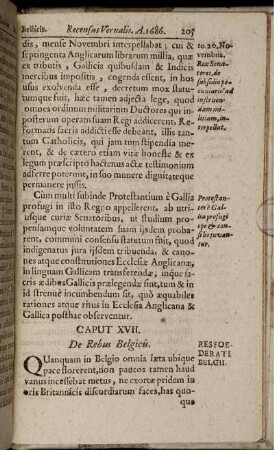 Bellicis. Recensus Vernalis. A. 1686. 205
dis, mense Novembri interpellabat; cui &
septingenta Anglicarum librarum millia, quæ
ex tributis, Gallicis quibusdam & Indicis
mercibus impositis, cogenda essent, in hos
usus exolvenda esse, decretum mox statu-
tumque fuit, hæc tamen adjecta lege, quod
omnes ordinum militarium Ductores qui in
exteris operam suam Regi addicerent. Re-
formatis sacris addicti esse debeant, illis tan-
tum Catholicis, qui jam tum stipendia mere-
rent, & de cætero etiam vitæ honeste & ex
regis præscripto hactenus actæ testimonium
adferre poterunt, in suo munere dignitateque
permanere jussis.
10. 20. No-
vembris.
Rex Sena-
tores, de
subsidio
pecuniario ad
interpellat.
Cum multi subinde Protestantium è Gallia
profugi in isto Regno appellerent, ab utrius-
que curiæ Senatoribus, ut studium propensiamque
voluntatem suam ijsdem probarent,
communi consensu statutum suit, quod
indigenatus jura ijsdem tribuenda, & cano-
nes atque constitutiones Ecclesiæ Anglicanæ,
in linguam Gallicam transferendæ, inque sa-
cris ædibus Gallicis prælegendæ sint, tum & in
id strenuè incumbendum sit, quò æquabiles
rationes atque ritus in Ecclesia Anglicana &
Gallica posthac observentur.
Protestan-
tes è Gal-
lia profugi
ope & con-
silio juvan-
tur.
CAPUT XVII.
De Rebus Belgicis.
Quanquam in Belgio omnia læta ubique
pace florerent, non paucos tamen haud
vanus incessebat metus, ne exortæ pridem in
oris Britannicis discordiarum faces, has quo-
que
RES FOE-
DERATI
BELGII.